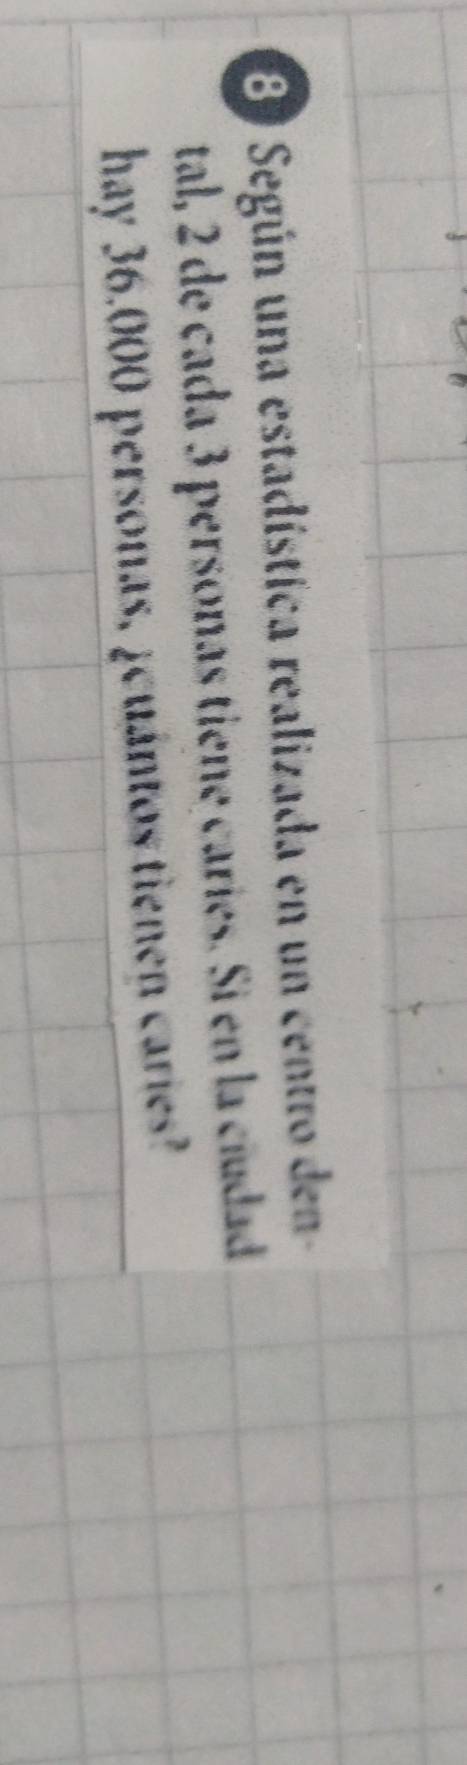 8 Según una estadística realizada en un centro den-
tal, 2 de cada 3 personas tiene caries. Si en la ciudad
hay 36.000 personas, ¿cuántos tienen caries?